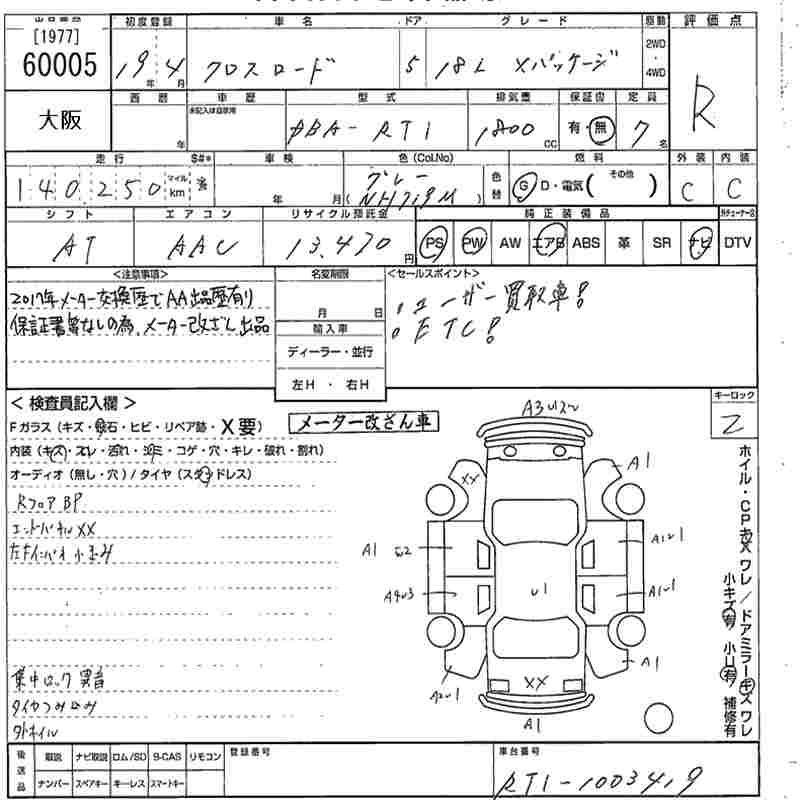 出品番号
[1977]
60005
大阪
初度登録
19年 4月
車名
クロスロード
ドア
5
グレード
18L Xパッケージ
駆動
2WD
・
4WD
評価点
R
西暦
年
車歴
未記入は自家用
型式
DBA-RT1
排気量
1800cc
保証書
有・無
定員
7名
走行
140,250
マイル
km
S#*
車検
年 月
色(Col.No)
グレー
(NH719M)
色替
燃料
G D・電気( その他 )
外装
C
内装
C
シフト
AT
エアコン
AAC
リサイクル預託金
13,470円
純正装備品
PS PW AW エアB ABS 革 SR ナビ
DTV
<注意事項>
2017年メーター交換歴でAA出品歴有り
保証書等なしの為、メーター改ざん出品
名変期限
月 日
輸入車
ディーラー・並行
左H ・ 右H
<セールスポイント>
・ユーザー買取車!
・ETC!
< 検査員記入欄 >
Fガラス(キズ・飛石・ヒビ・リペア跡・X要)
メーター改ざん車
内装(キズ・スレ・汚れ・シミ・コゲ・穴・キレ・破れ・割れ)
オーディオ(無し・穴)/タイヤ(スタッドレス)
RフロアBP
エンドパネルXX
集中ロック異音
タイヤつみ込み
外ホイル
キーロック
2
ホイル・CPキズ ワレ/ドアミラーキズ ワレ
小キズ有 小U有 補修有
XX
A1
A1
A1U1
U1
A1U1
A1
A2U1
XX
A1
後送品
取説 ナビ取説 ロム/SD B-CAS リモコン
ナンバー スペアキー キーレス スマートキー
登録番号
車台番号
RT1-1003419